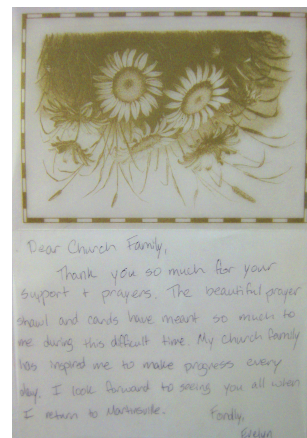 Dear Church Family,
Thank you so much for your
support + prayers. The beautiful prayer
shawl and cards have meant so much to
me during this difficult time. My church family
has inspired me to make progress every
day. I look forward to seeing you all when
I return to Northside.
Fondly,
Evelyn